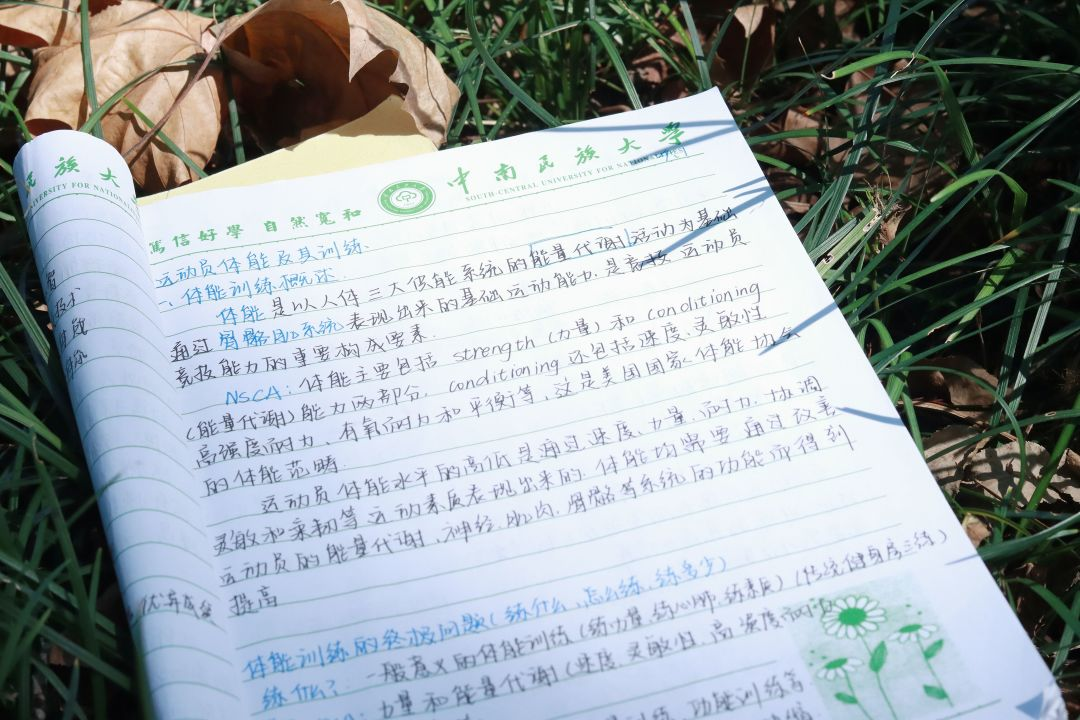 民族大
UNIVERSITY FOR NATIONA
中南民族大学
SOUTH-CENTRAL UNIVERSITY FOR NATIONALITIES
篤信好學 自然寬和
运动员体能及其训练.
一、体能训练概述.
体能是以人体三大供能系统的能量代谢活动为基础
通过骨骼肌系统表现出来的基础运动能力.是竞技运动员
竞技能力的重要构成要素.
NSCA:体能主要包括 strength (力量) 和 conditioning
(能量代谢)能力两部分, conditioning还包括速度、灵敏性
高强度耐力、有氧耐力和平衡等,这是美国国家体能协会
的体能范畴
运动员体能水平的高低是通过速度、力量、耐力、协调
灵敏和柔韧等运动素质表现出来的.体能均需要通过改善
运动员的能量代谢、神经.肌肉.骨骼等系统的功能而得到
提高
体能训练的终极问题(练什么、怎么练、练多少)
练什么? 一般意义的体能训练(练力量,练心肺,练柔韧)(传统健身房三练)
力量和能量代谢(速度.灵敏性.高强度耐
训练、功能训练等